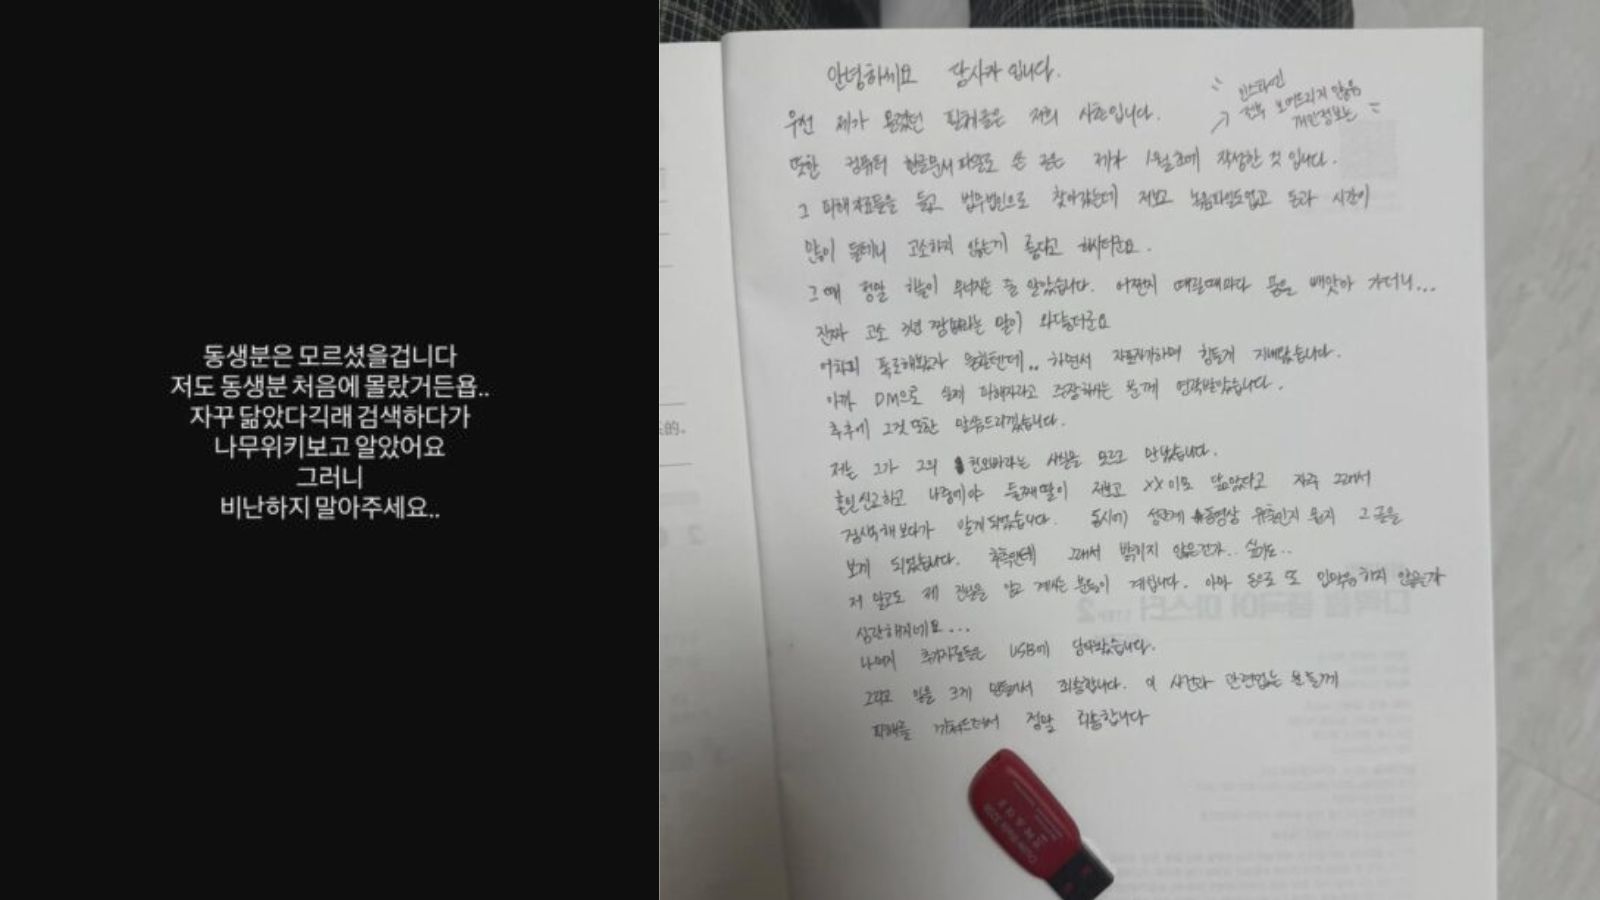 동생분은 모르셨을겁니다
저도 동생분 처음에 몰랐거든욥..
자꾸 닮았다긱래 검색하다가
나무위키보고 알았어요
그러니
비난하지 말아주세요..
안녕하세요 당사자 입니다.
우선 제가 올렸던 필체글은 저희 사촌입니다.
전부 보여드리지 않음
개인정보는
또한 컴퓨터 한글문서 파일로 쓴 글은 제가 1월초에 작성한 것 입니다.
그 피해자료들을 들고 법무법인으로 찾아갔는데 저보고 녹음파일도없고 돈과 시간이
많이 들테니 고소하지 않는게 좋다고 하시더군요.
그때 정말 하늘이 무너지는 줄 알았습니다. 어쩐지 때릴때마다 폰을 빼앗아 가더니...
진짜 고소 3년 짬바라는 말이 와닿더군요
어차피 폭로해봤자 묻힐텐데.. 하면서 자포자기하며 힘들게 지내왔습니다.
아까 DM으로 실제 피해자라고 주장하는 분께 연락받았습니다.
추후에 그것 또한 말씀드리겠습니다.
저는 그가 그의 친오빠라는 사실을 모르고 만났습니다.
혼인신고하고 나중에야 둘째딸이 저보고 XX이모 닮았다고 자주 그래서
검색해보다가 알게되었습니다. 동시에 성관계 동영상 유출인지 뭔지 그 글을
보게 되었습니다. 추측인데 그래서 밝히지 않은건가.. 싶기도..
저 말고도 제 진실을 알고 계시는 분들이 계십니다. 아마 돈으로 또 입막음 하지 않을까
심란해지네요...
나머지 추가자료들은 USB에 담아놨습니다.
그리고 일을 크게 만들어서 죄송합니다. 이 사건과 관련없는 분들께
피해를 끼쳐드려서 정말 죄송합니다